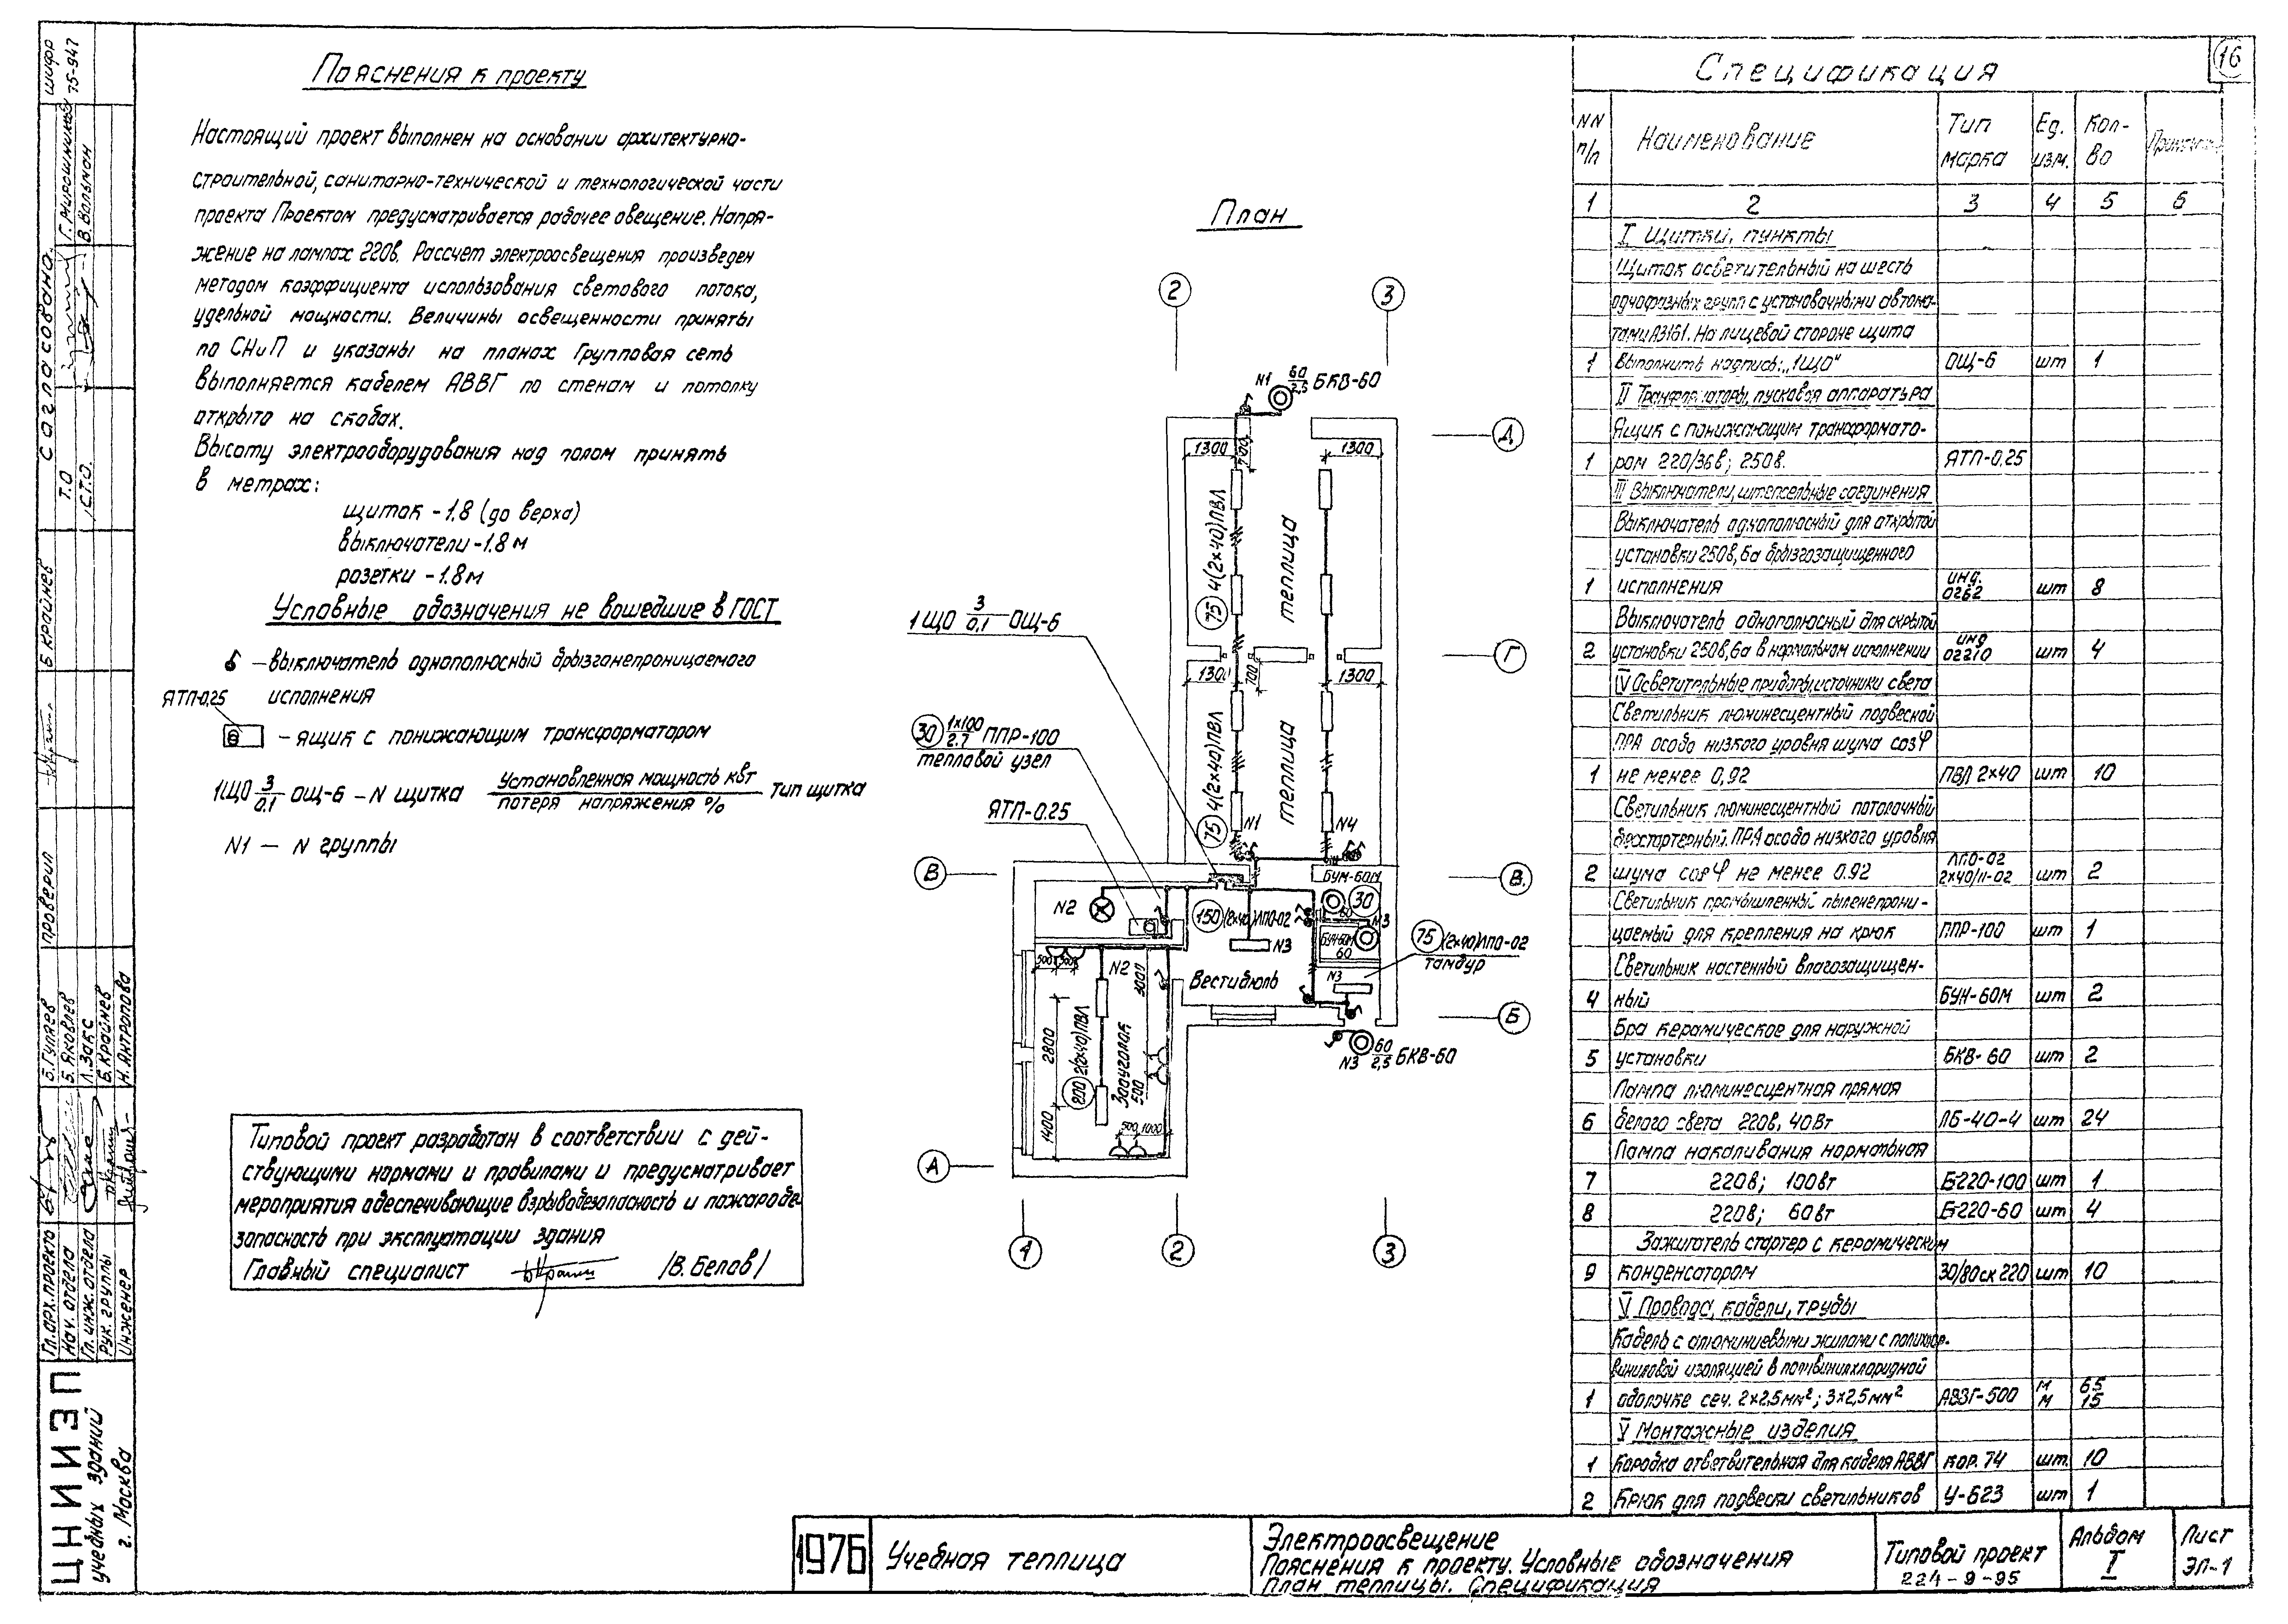 Пояснения к проекту
Настоящий проект выполнен на основании архитектурно-
строительной, санитарно-технической и технологической части
проекта Проектом предусматривается рабочее овещение. Напря-
жение на лампах 220в. Рассчет электроосвещения произведен
методом коэффициента использования светового потока,
удельной мощности. Величины освещенности приняты
по СНиП и указаны на планах Групповая сеть
выполняется кабелем АВВГ по стенам и потолку
открыто на скобах.
Высоту электрооборудования над полом принять
в метрах:
щиток - 1.8 (до верха)
выключатели - 1.8 м
розетки - 1.8 м
Условные обозначения не вошедшие в ГОСТ
– выключатель однополюсный брызганепроницаемого
исполнения
ЯТП-0,25
– ящик с понижающим трансформатором
1ЩО 3/0.1 ОЩ-6 – N щитка Установленная мощность квт / потеря напряжения % Тип щитка
N1 – N группы
Типовой проект разработан в соответствии с дей-
ствующими нормами и правилами и предусматривает
мероприятия обеспечивающие взрывобезопасность и пожаробе-
зопасность при эксплуатации здания
Главный специалист /В. Белов/
План
2
3
N1 60/2,5 БКВ-60
Д
1300
700
1300
75 4(2×40)ПВЛ
теплица
1ЩО 3/0,1 ОЩ-6
Г
1300
700
1300
75 4(2×40)ПВЛ
теплица
30 1×100/2.7 ППР-100
тепловой узел
ЯТП-0.25
N1
N4
В
В.
N2
150 (2×40)ЛПО-02
N3
БУМ-60М
60
30
N3
БУН-60М
60
75 (2×40)ЛПО-02
тамбур
N3
Вестибюль
500
500
N2
3000
2800
1400
200 2(2×40)ПВЛ
Зооуголок
500
500 1000
Б
N3 60/2,5 БКВ-60
А
1
2
3
16
Спецификация
NN п/п
Наименование
Тип марка
Ед. изм.
Кол-во
1 2 3 4 5 6
I Щитки, пункты
Щиток осветительный на шесть
однофазных групп с установочными автома-
тами А3161. На лицевой стороне щита
1 выполнить надпись: „1ЩО" ОЩ-6 шт 1
II Трансформаторы, пусковая аппаратура
Ящик с понижающим трансформато-
1 ром 220/36в; 250в. ЯТП-0,25
III Выключатели, штепсельные соединения
Выключатель однополюсный для открытой
установки 250в, 6а брызгозащищенного
1 исполнения инд. 0262 шт 8
Выключатель однополюсный для скрытой
2 установки 250в, 6а в нормальном исполнении инд 02210 шт 4
IV Осветительные приборы, источники света
Светильник люминесцентный подвесной
ПРА особо низкого уровня шума cosφ
1 не менее 0,92 ПВЛ 2×40 шт 10
Светильник люминесцентный потолочный
бесстартерный. ПРА особо низкого уровня
2 шума cosφ не менее 0.92 ЛПО-02 2×40/П-02 шт 2
Светильник промышленный пыленепрони-
цаемый для крепления на крюк ППР-100 шт 1
Светильник настенный влагозащищен-
4 ный БУН-60М шт 2
Бра керамическое для наружной
5 установки БКВ-60 шт 2
Лампа люминесцентная прямая
6 белого света 220в, 40Вт ЛБ-40-4 шт 24
Лампа накаливания нормальная
7 220в; 100вт Б-220-100 шт 1
8 220в; 60вт Б-220-60 шт 4
Зажигатель стартер с керамическим
9 конденсатором 30/80ск 220 шт 10
V Провода, кабели, трубы
Кабель с алюминиевыми жилами с полихлор-
виниловой изоляцией в поливинилхлоридной
1 оболочке сеч. 2×2,5мм²; 3×2,5мм² АВВГ-500 М М 65 15
V Монтажные изделия
1 Коробка ответвительная для кабеля АВВГ кор. 74 шт. 10
2 Крюк для подвески светильников У-623 шт 1
1976
Учебная теплица
Электроосвещение
Пояснения к проекту. Условные обозначения
План теплицы. Спецификация
Типовой проект
224-9-95
Альбом
I
Лист
ЭЛ-1
шифр
75-947
Согласовано.
Г. Мирошников
В. Вольман
Т.О
С.Т.О.
Б Крайнев
проверил
Б. Гуляев
Б. Яковлев
Л. Закс
Б. Крайнев
Н. Антропова
Гл. арх. проекта
Нач. отдела
Гл. инж. отдела
Рук. группы
Инженер
ЦНИИЭП
учебных зданий
г. Москва